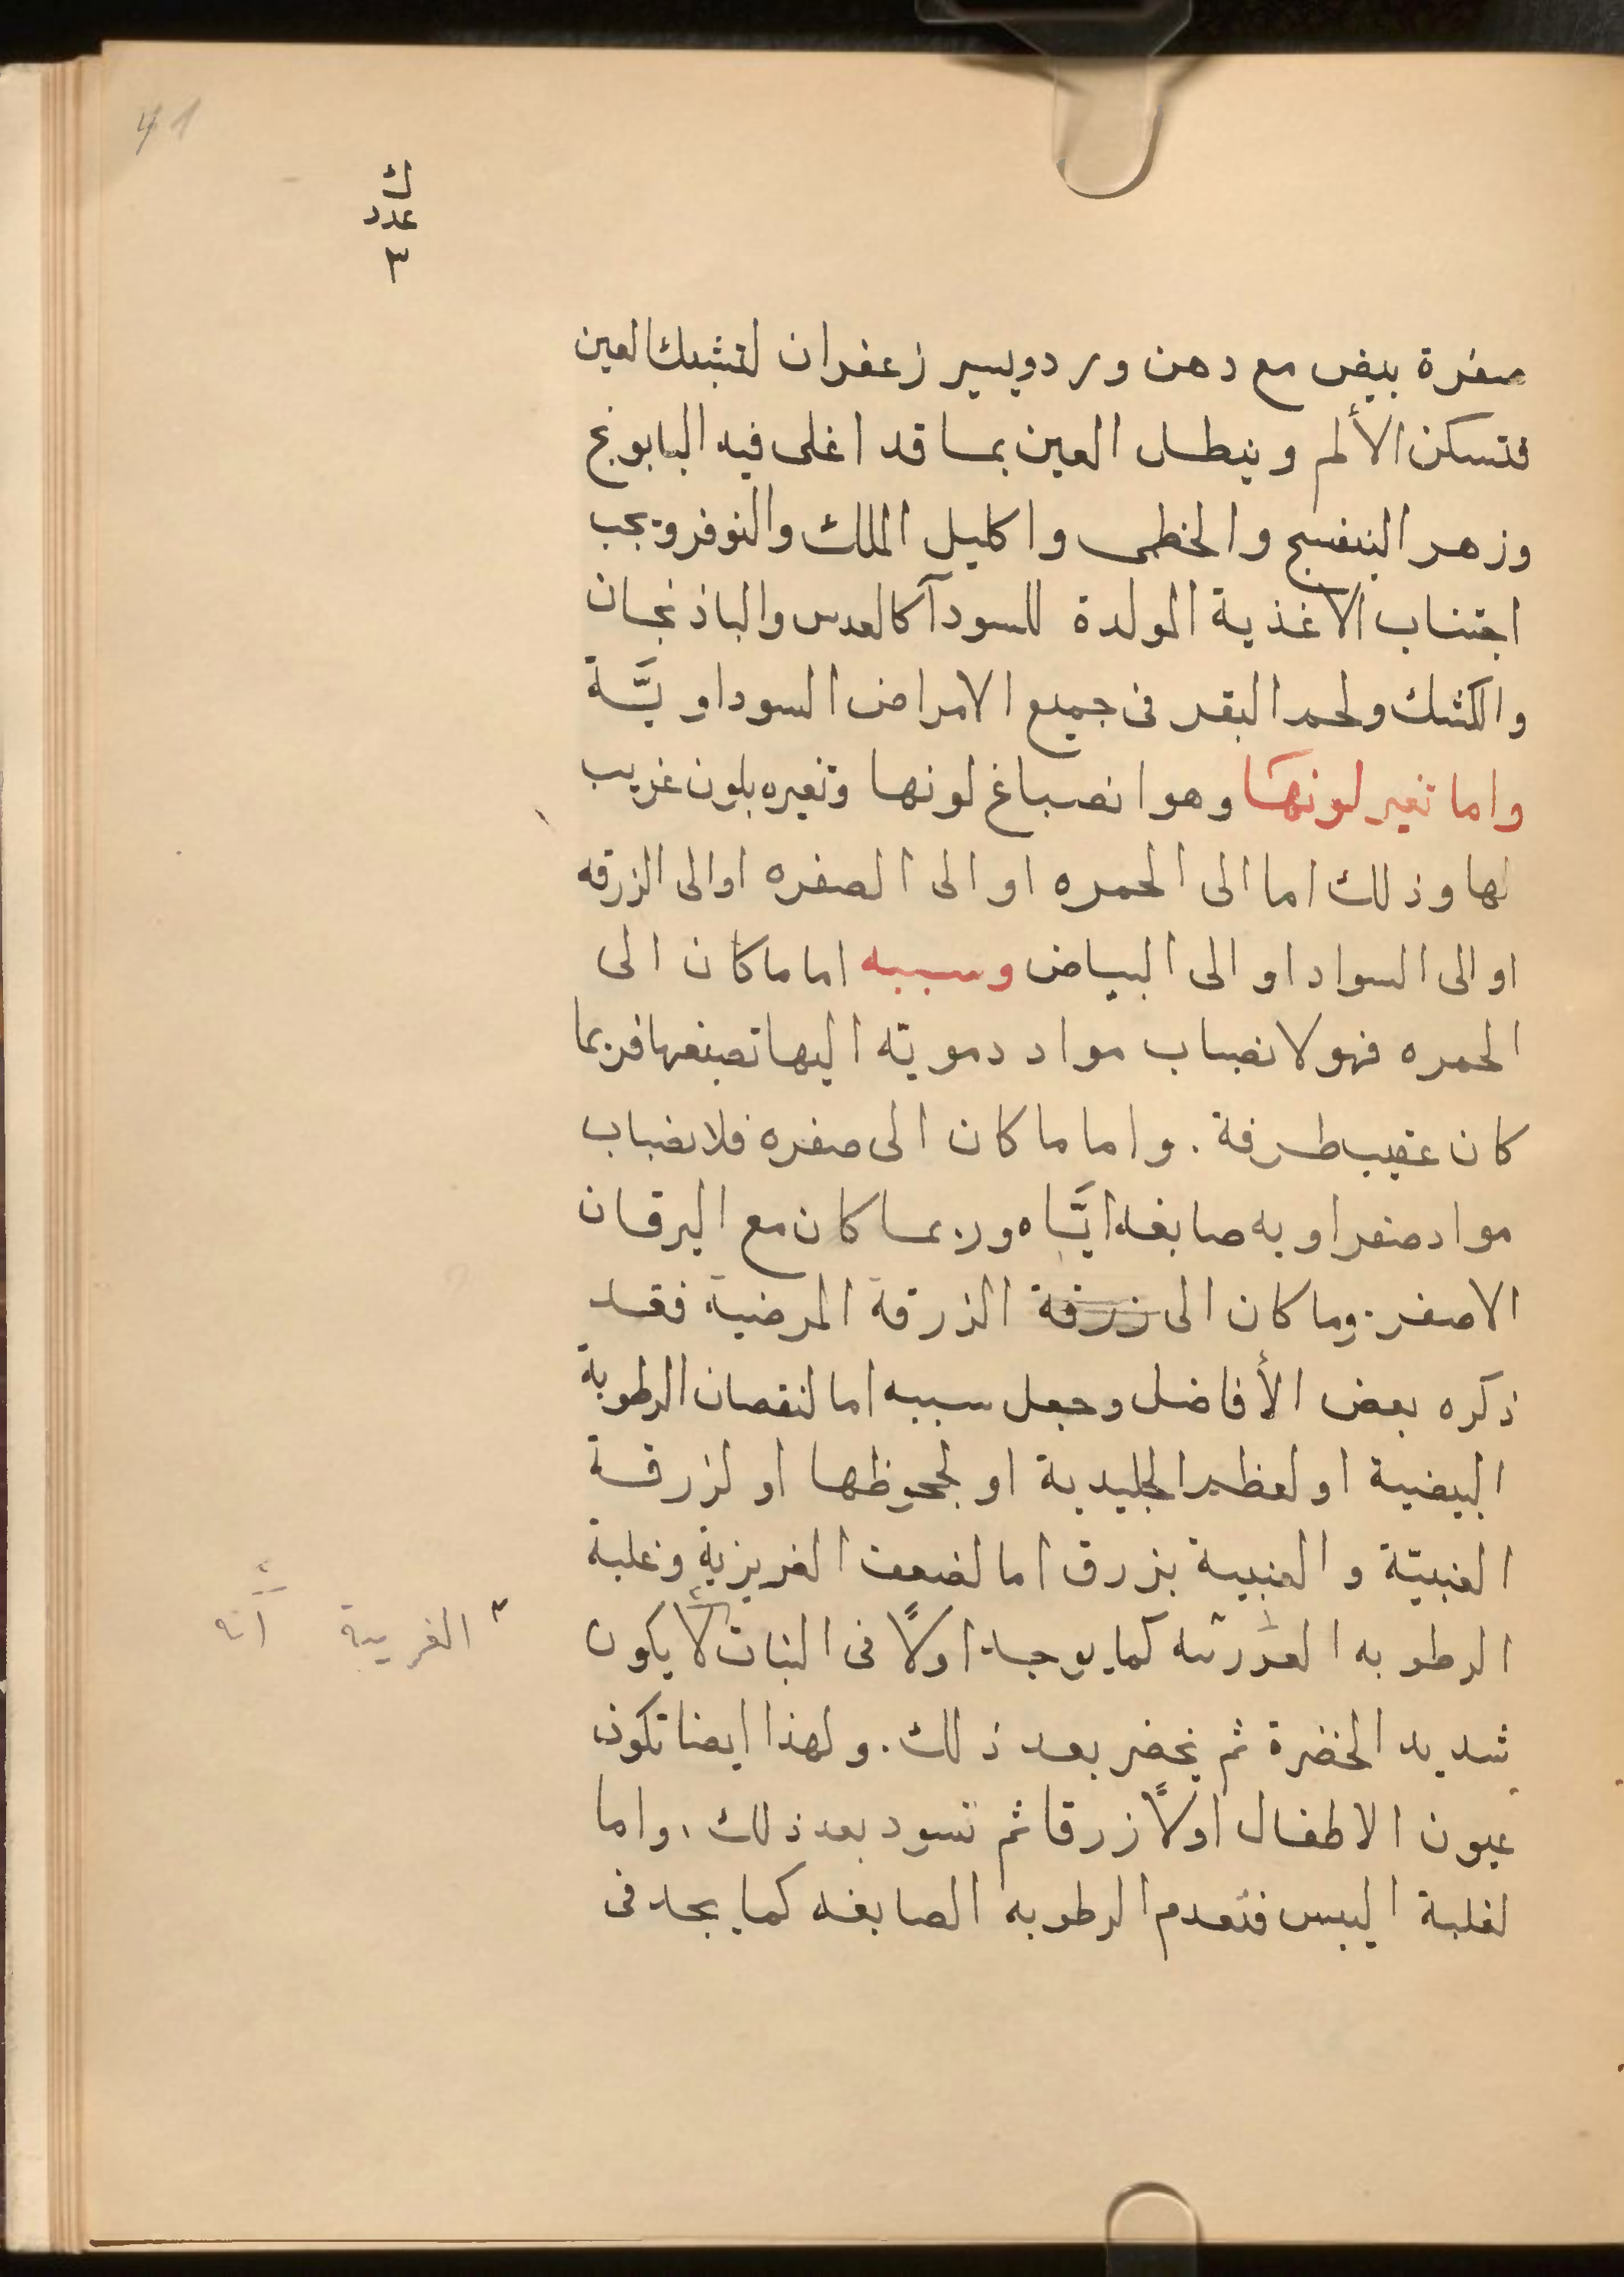 41
ك
عدد
٣
صفرة بيض مع دهن ورد ويسير زعفران لتشبك العين
فتسكن الألم وينطل العين بما قد اغلى فيه البابونج
وزهر البنفسج والخطمى واكليل الملك والنوفر ويجب
اجتناب الاغذية المولدة للسودآ كالعدس والباذنجان
والكشك ولحم البقر فى جميع الامراض السوداويَّة
واما تغير لونها وهو انصباغ لونها وتغيره بلون غريب
لها وذلك اما الى الحمره او الى الصفره او الى الزرقه
او الى السواد او الى البياض وسببه اما ما كان الى
الحمره فهو لانصباب مواد دمويه اليها تصبغها فربما
كان عقيب طرفة. واما ما كان الى صفره فلانصباب
مواد صفراويه صابغه ايَّاه وربما كان مع اليرقان
الاصفر. وما كان الى زرقة الزرقة المرضية فقد
ذكره بعض الأفاضل وجعل سببه اما لنقصان الرطوبة
البيضية او لعظم الجليدية او لجحوظها او لزرقة
العنبيّة والعنبية بزرق اما لضعف الغريزية وغلبة
الرطوبه كما يوجد اولاً فى النبات لا يكون
شديد الخضرة ثم يخضر بعد ذلك. ولهذا ايضا تكون
عيون الاطفال اولاً زرقا ثم تسود بعد ذلك، واما
لغلبة اليبس فتعدم الرطوبه الصابغه كما يجد فى
٣ الغريبة أنه